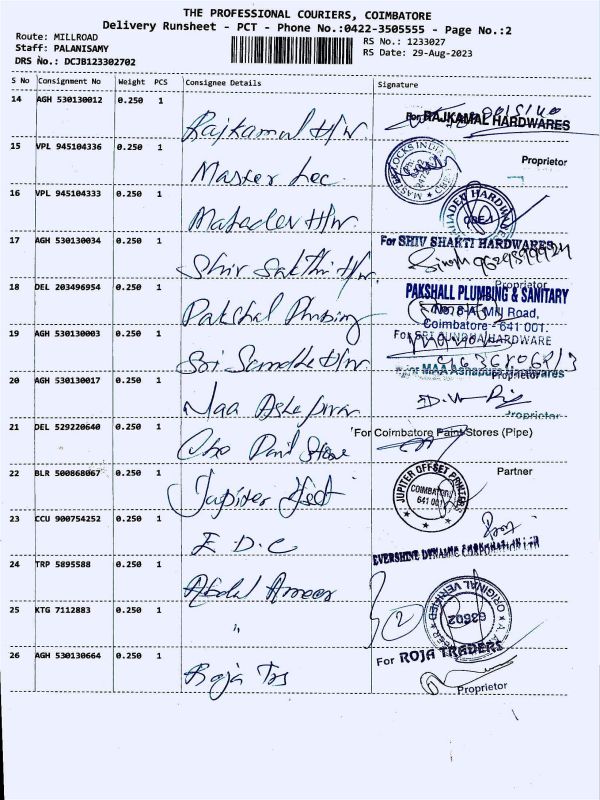 THE PROFESSIONAL COURIERS, COIMBATORE
Delivery Runsheet - PCT - Phone No.:0422-3505555 - Page No.:2
Route: MILLROAD
Staff: PALANISAMY
DRS No.: DCJB123302702
RS No.: 1233027
RS Date: 29-Aug-2023
S No Consignment No Weight PCS Consignee Details Signature
14 AGH 530130012 0.250 1 Rajkamal H/W For RAJKAMAL HARDWARES
15 VPL 945104336 0.250 1 Master Loc Proprietor
16 VPL 945104333 0.250 1 Mahadev H/W
17 AGH 530130034 0.250 1 Shiv Sakthi H/W For SHIV SHAKTI HARDWARES
Proprietor
18 DEL 203496954 0.250 1 Pakshal Plumbing PAKSHALL PLUMBING & SANITARY
No. 8-A, Mill Road,
Coimbatore - 641 001.
19 AGH 530130003 0.250 1 Sri Sundha H/W For SRI SUNDHA HARDWARE
Proprietor
20 AGH 530130017 0.250 1 Maa Ashapura For MAA Ashapura Hardwares
Proprietor
21 DEL 529220640 0.250 1 Cbe Paint Store For Coimbatore Paint Stores (Pipe)
Partner
22 BLR 500868067 0.250 1 Jupiter JUPITER OFFSET PRINTERS
COIMBATORE
641 001
23 CCU 900754252 0.250 1 E.D.C EVERSHINE DYNAMIC CORPORATION
24 TRP 5895588 0.250 1 Abdul Ameer ORIGINAL VERIFIED
25 KTG 7112883 0.250 1 " 2
26 AGH 530130664 0.250 1 Roja Trs For ROJA TRADERS
Proprietor